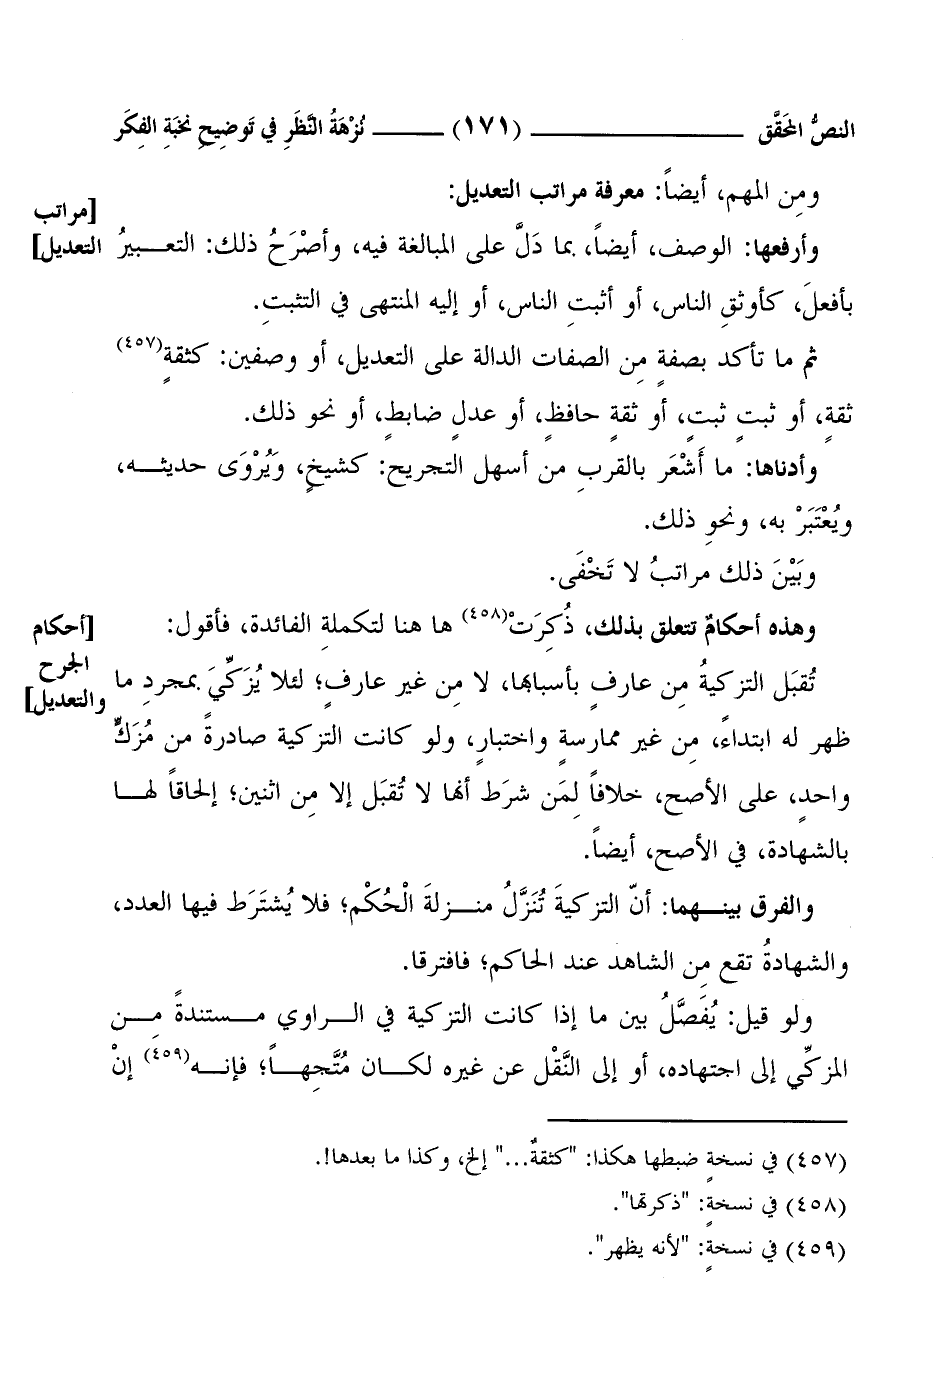 النصُّ المحَقَّق ـــــــــــــ (١٧١) ـــــــ نُزْهَةُ النَّظَرِ في تَوضِيحِ نخبَةِ الفِكَر
ومِن المهم، أيضاً: معرفة مراتب التعديل:
[مراتب
التعديل]
وأرفعها: الوصف، أيضاً، بما دَلَّ على المبالغة فيه، وأصْرَحُ ذلك: التعـــبيرُ
بأفعلَ، كأوثقِ الناس، أو أثبتِ الناس، أو إليه المنتهى في التثبتِ.
ثم ما تأكد بصفةٍ مِن الصفات الدالة على التعديل، أو وصفين: كثقةٍ(٤٥٧)
ثقةٍ، أو ثبتٍ ثبتٍ، أو ثقةٍ حافظٍ، أو عدلٍ ضابطٍ، أو نحو ذلك.
وأدناها: ما أَشْعَر بالقرب مِن أسهل التجريح: كشيخٍ، ويُرْوَى حديثـــه،
ويُعْتَبَرْ به، ونحوِ ذلك.
وبَيْنَ ذلك مراتبُ لا تَخْفَى.
وهذه أحكامٌ تتعلق بذلك، ذُكِرَتْ(٤٥٨) ها هنا لتكملةِ الفائدة، فأقول:
[أحكام
الجرح
والتعديل]
تُقبَل التزكيةُ مِن عارفٍ بأسبابها، لا مِن غير عارفٍ؛ لئلا يُزَكِّيَ بمجردِ ما
ظهر له ابتداءً، مِن غير ممارسةٍ واختبارٍ، ولو كانت التزكية صادرةً من مُزَكٍّ
واحدٍ، على الأصح، خلافاً لِمَن شرَط أنها لا تُقبَل إلا مِن اثنين؛ إلحاقاً لهـــا
بالشهادة، في الأصح، أيضاً.
والفرق بينـــهما: أنّ التزكيةَ تُنَزَّلُ منـــزلةَ الْحُكْم؛ فلا يُشتَرَط فيها العدد،
والشهادةُ تقع مِن الشاهد عند الحاكم؛ فافترقا.
ولو قيل: يُفَصَّلُ بين ما إذا كانت التزكية في الـــراوي مـــستندةً مِـــن
المزكِّي إلى اجتهاده، أو إلى النَّقْل عن غيره لكـــان مُتَّجِهـــاً؛ فإنـــه(٤٥٩) إنْ
(٤٥٧) في نسخةٍ ضبطها هكذا: "كثقةٌ..." إلخ، وكذا ما بعدها!.
(٤٥٨) في نسخةٍ: "ذكرتها".
(٤٥٩) في نسخةٍ: "لأنه يظهر".